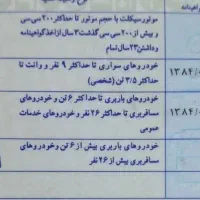 گواهینامه
موتورسیکلت با حجم موتور تا حداکثر ۲۰۰ سی سی
و بیش از ۲۰۰ سی سی گذشت ۳ سال از اخذ گواهینامه
و داشتن ۲۳ سال تمام
خودروهای سواری تا حداکثر ۹ نفر و وانت تا
حداکثر ۳/۵ تن (شخصی)
۱۳۸۴/
خودروهای باربری تا حداکثر ۶ تن و خودروهای
مسافربری تا حداکثر ۲۶ نفر و خودروهای خدمات
عمومی
۱۳۸۴/۰
خودروهای باربری بیش از ۶ تن و خودروهای
مسافربری بیش از ۲۶ نفر